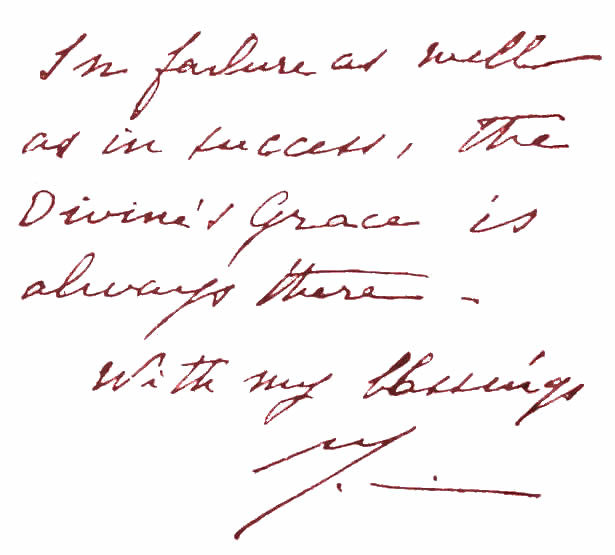 In failure as well
as in success, the
Divine's Grace is
always there -
With my blessings